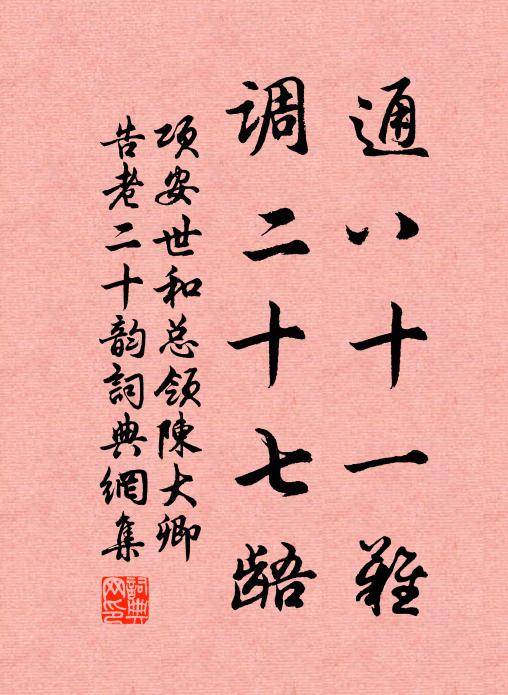 通八十一难
调二十七龉
项安世和总领陳大卿
告老二十韵詞典網集
詞典网印